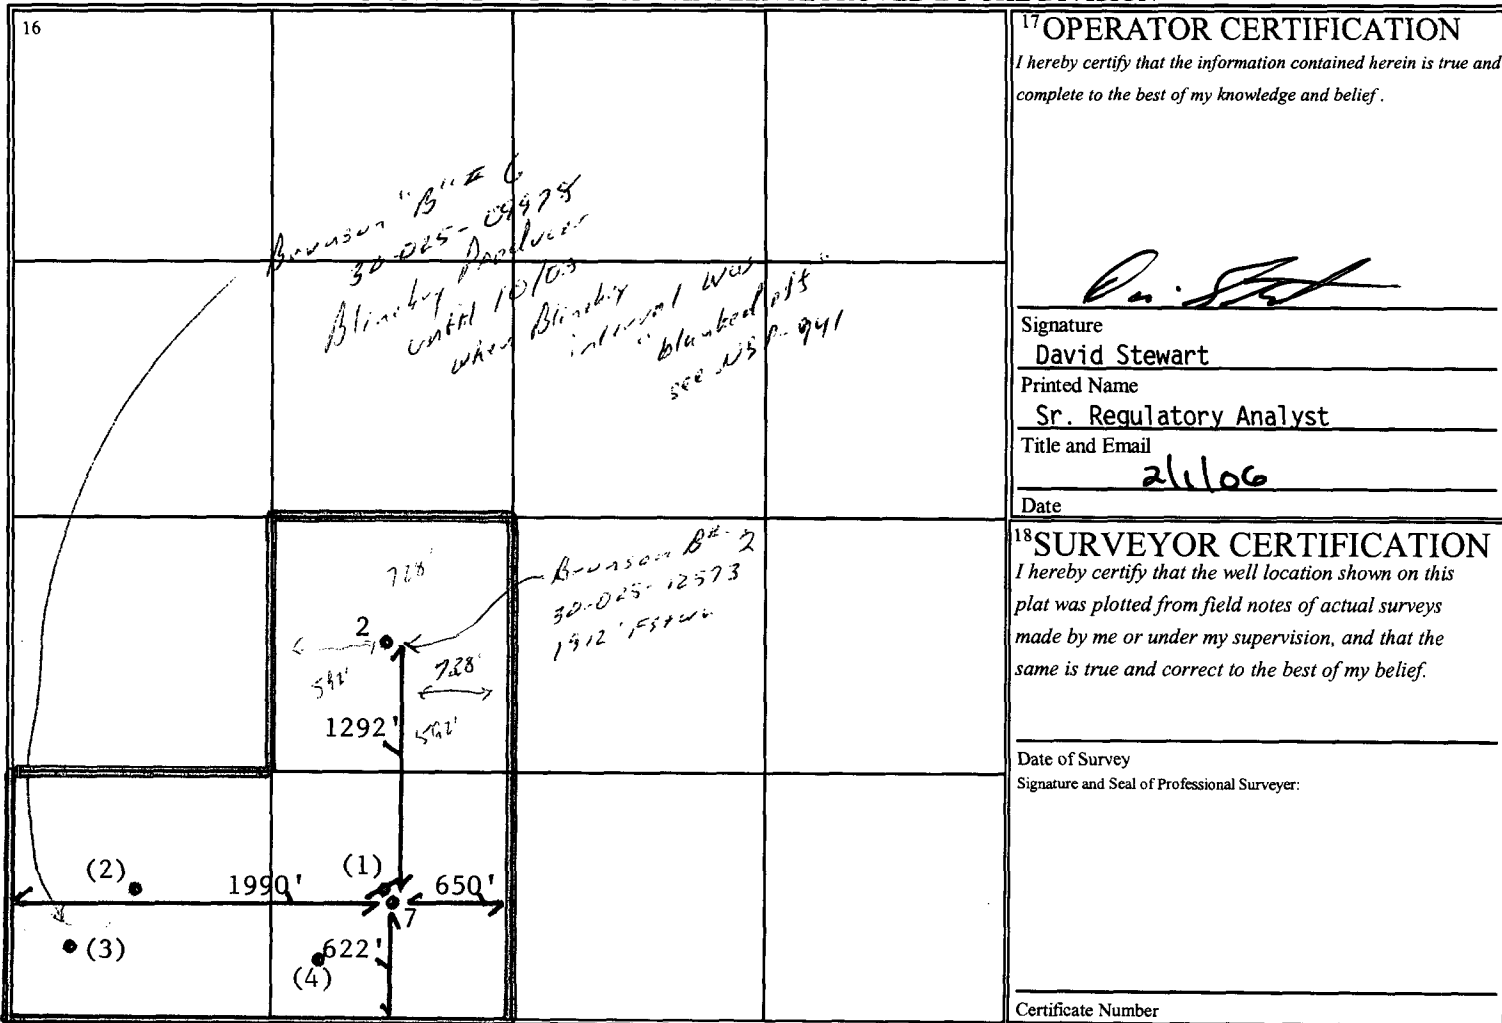 16
"B" # 6
30-025-09978
Blinebry Producer
until 10/03
when Blinebry
interval was
"blanked off"
see NSP-941
728'
2
592'
728'
1292'
592'
B# 2
30-025-12573
1912'
(2)
1990'
(1)
650'
7
(3)
622'
(4)
17 OPERATOR CERTIFICATION
I hereby certify that the information contained herein is true and
complete to the best of my knowledge and belief.
Signature
David Stewart
Printed Name
Sr. Regulatory Analyst
Title and Email
2/1/06
Date
18 SURVEYOR CERTIFICATION
I hereby certify that the well location shown on this
plat was plotted from field notes of actual surveys
made by me or under my supervision, and that the
same is true and correct to the best of my belief.
Date of Survey
Signature and Seal of Professional Surveyer:
Certificate Number